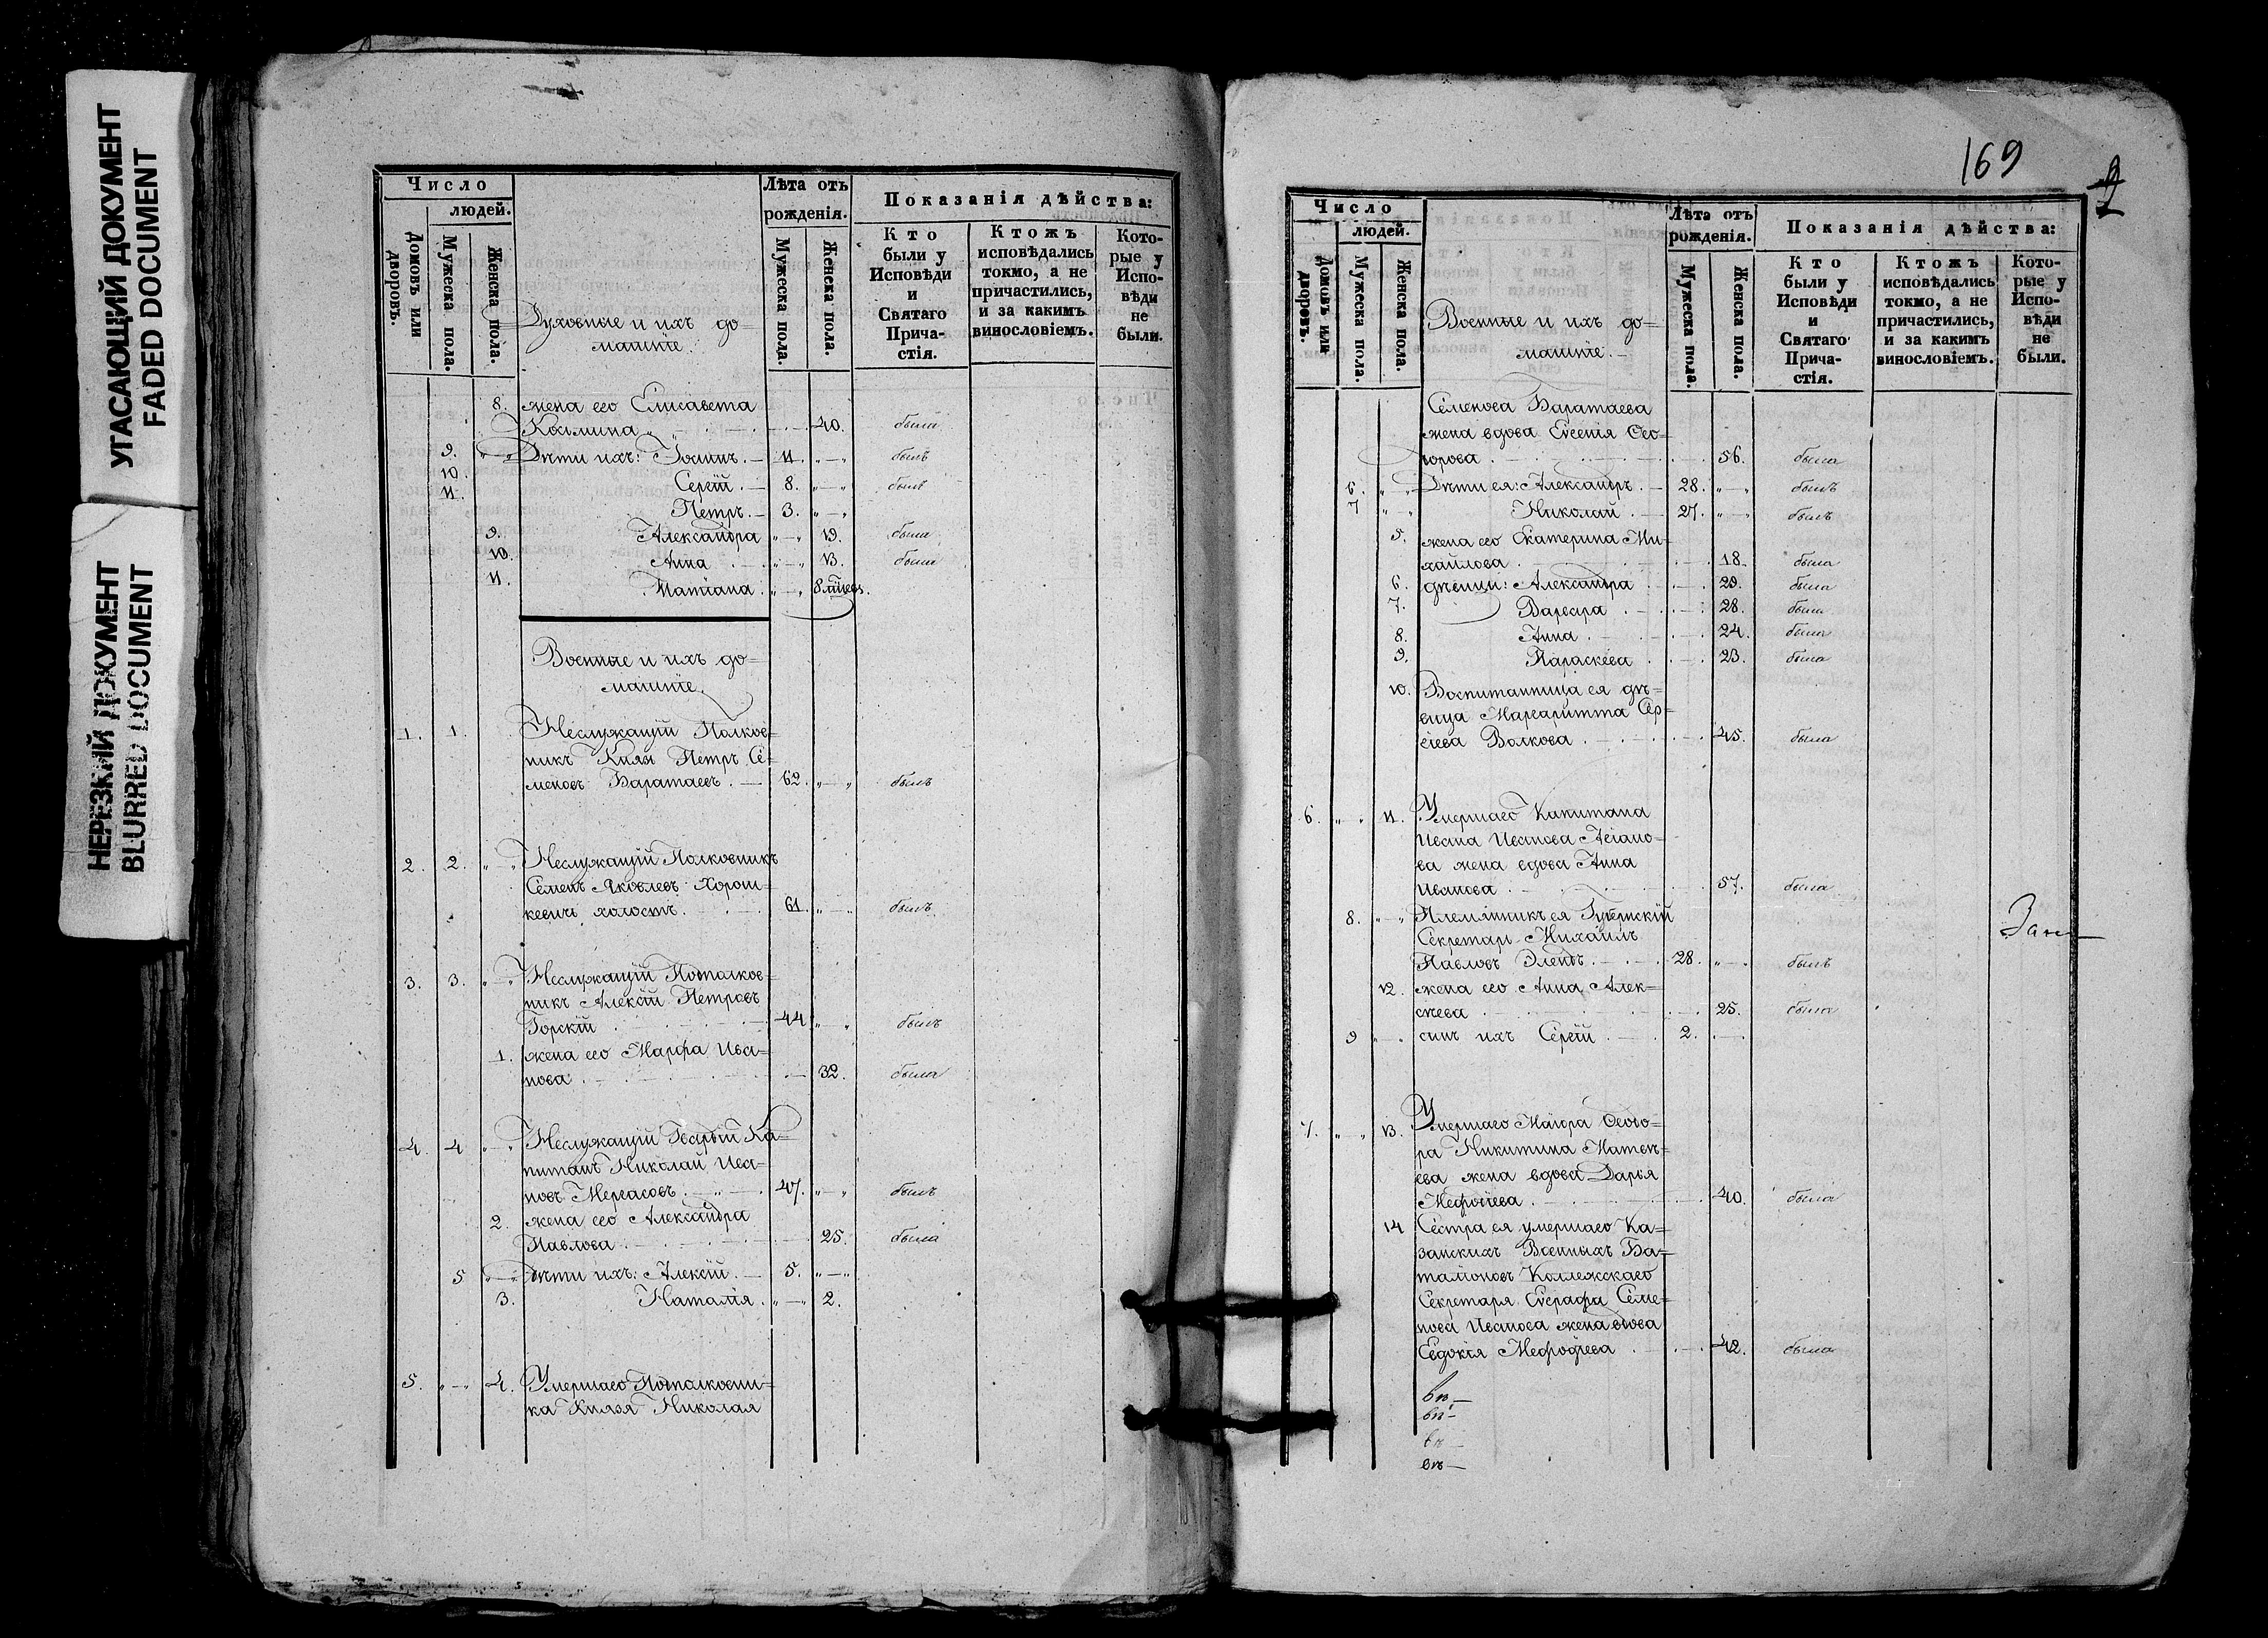 УГАСАЮЩИЙ ДОКУМЕНТ
FADED DOCUMENT
НЕРЕЗКИЙ ДОКУМЕНТ
BLURRED DOCUMENT
Число
людей.
Домовъ или дворовъ.
Мужеска пола.
Женска пола.
Духовные и ихъ до=
машніе.
Лѣта отъ
рожденія.
Мужеска пола.
Женска пола.
Показанія дѣйства:
Кто были у Исповѣди и Святаго Прича-стія.
Ктожъ исповѣдались токмо, а не причастились, и за какимъ винословіемъ.
Кото-рые у Испо-вѣди не были.
8. жена его Елисавета
Козмина 40. была
9. Дѣти ихъ: Іоаннъ. 11. былъ
10. Сергій. 8. былъ
11. Петръ. 3.
9. Александра 19. была
10. Анна 13. была
11. Татіана 8 мѣсец.
Военные и ихъ до=
машніе.
1. 1. Неслужащій Полков=
никъ Князь Петръ Се=
меновъ Баратаевъ. 62. былъ
2. 2. Неслужащій Полковникъ
Семенъ Яковлевъ Хорош=
кевичь холостъ. 61. былъ
3. 3. Неслужащій Подполков=
никъ Алексій Петровъ
Горскій 44 былъ
1. жена его Марфа Ива=
нова 32. была
4. 4 Неслужащій Гвардіи Ка=
питанъ Николай Ива=
новъ Мергасовъ 47. былъ
2. жена его Александра
Павлова 25. была
5 Дѣти ихъ: Алексій. 5.
3. Наталія. 2.
5. 4. Умершаго Подполковни=
ка Князя Николая
169
2
Число
людей.
Домовъ или дворовъ.
Мужеска пола.
Женска пола.
Военные и ихъ до=
машніе.
Лѣта отъ
рожденія.
Мужеска пола.
Женска пола.
Показанія дѣйства:
Кто были у Исповѣди и Святаго Прича-стія.
Ктожъ исповѣдались токмо, а не причастились, и за какимъ винословіемъ.
Кото-рые у Испо-вѣди не были.
Семенова Баратаева
жена вдова Евгенія Ѳео=
дорова 56. была
6. Дѣти ея: Александръ. 28. былъ
7 Николай 27. былъ
5. жена его Екатерина Ми=
хайлова 18. была
6. дѣвицы: Александра 29. была
7. Варвара 28. была
8. Анна 24. была
9. Параскева 23. была
10. Воспитанница ея дѣ=
вица Маргаритта Сер=
гіева Волкова 45. была
6. 11. Умершаго Капитана
Ивана Иванова
ва жена вдова Анна
Иванова 57. была
8. Племянникъ ея Губернскій
Секретарь Михаилъ
Павловъ 28. былъ
12. жена его Анна Алек=
сѣева 25. была
9 сынъ ихъ Сергій 2.
7. 13. Умершаго Маіора Ѳеодо=
ра Никитина Матвѣ=
ева жена вдова Дарья
Мефодіева 40. была
14 Сестра ея умершаго Ка=
занскихъ Военныхъ Ба=
таліоновъ Коллежскаго
Секретаря Евграфа Семе=
нова Иванова жена вдова
Евдокія Мефодіева 42. была